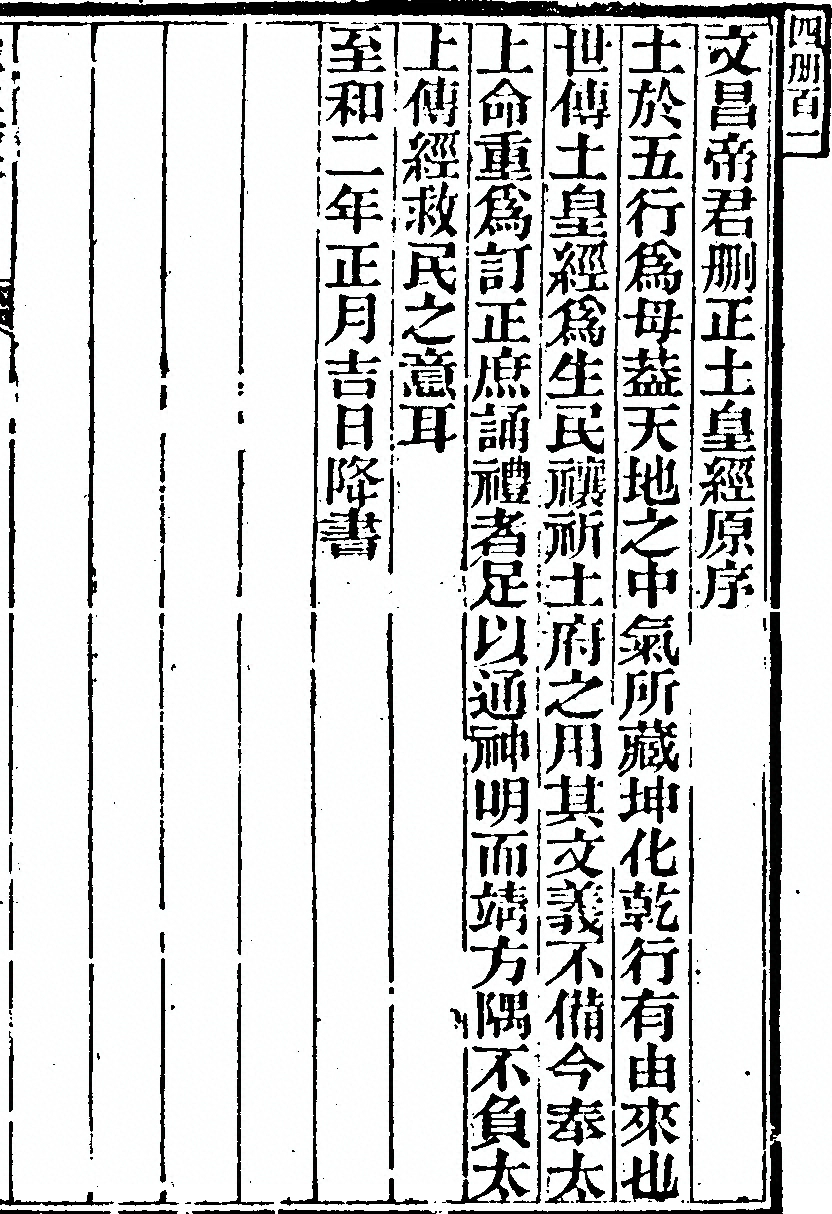 四册百一
文昌帝君刪正土皇經原序
土於五行爲母葢天地之中氣所藏坤化乾行有由來也
世傳土皇經爲生民禳祈土府之用其文義不備今奉太
上命重爲訂正庶誦禮者足以通神明而靖方隅不負太
上傳經救民之意耳
至和二年正月吉日降書